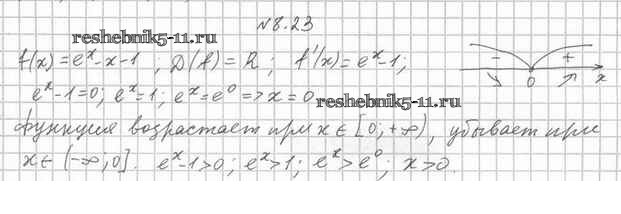 №8.23
reshebnik5-11.ru
f(x) = eˣ-x-1 ; D(f) = R ; f'(x) = eˣ-1 ;
- +
0 x
eˣ-1=0; eˣ=1; eˣ=e⁰ => x=0
reshebnik5-11.ru
Функция возрастает при x∈[0;+∞), убывает при
x∈(-∞;0]. eˣ-1>0; eˣ>1; eˣ>e⁰; x>0.